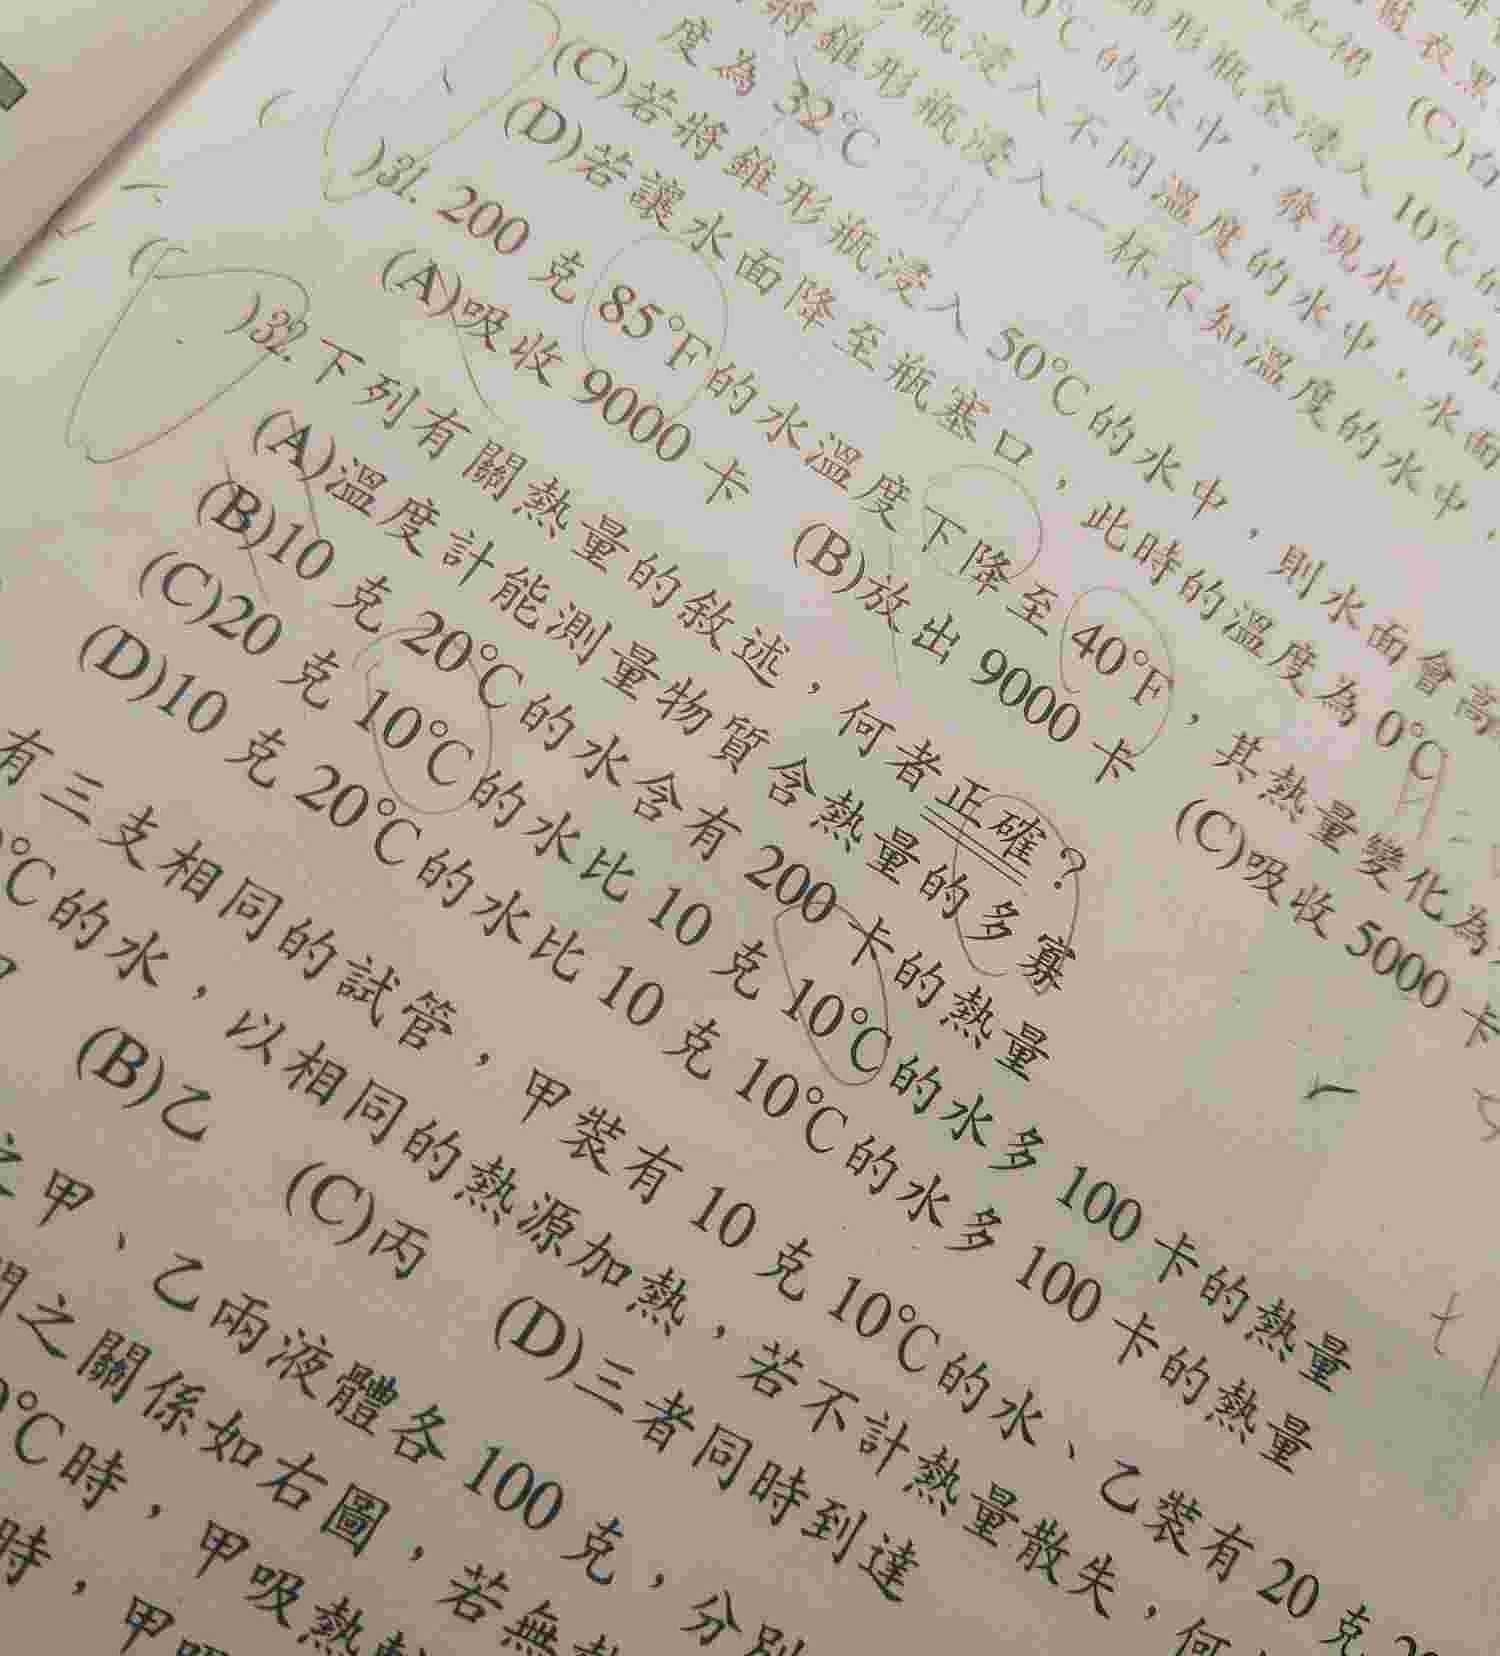 (C)白
形瓶全浸入 10℃的
0℃的水中，發現水面高
瓶浸入不同溫度的水中，水面
將錐形瓶浸入一杯不知溫度的水中，
度為 32℃
(C)若將錐形瓶浸入 50℃的水中，則水面會高
(D)若讓水面降至瓶塞口，此時的溫度為 0℃
( )31. 200 克 85℉的水溫度下降至 40℉，其熱量變化為
(A)吸收 9000 卡 (B)放出 9000 卡 (C)吸收 5000 卡
( )32. 下列有關熱量的敘述，何者正確？
(A)溫度計能測量物質含熱量的多寡
(B)10 克 20℃的水含有 200 卡的熱量
(C)20 克 10℃的水比 10 克 10℃的水多 100 卡的熱量
(D)10 克 20℃的水比 10 克 10℃的水多 100 卡的熱量
有三支相同的試管，甲裝有 10 克 10℃的水、乙裝有 20 克
℃的水，以相同的熱源加熱，若不計熱量散失，何
(B)乙 (C)丙 (D)三者同時到達
之甲、乙兩液體各 100 克，分別
之關係如右圖，若無熱
℃時，甲吸熱
時，甲吸